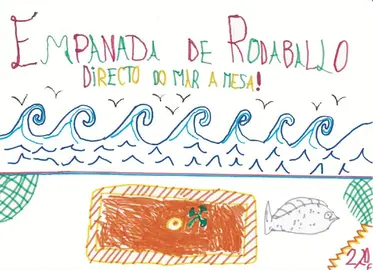 EMPANADA DE RODABALLO
DIRECTO DO MAR A MESA!
2,20 €